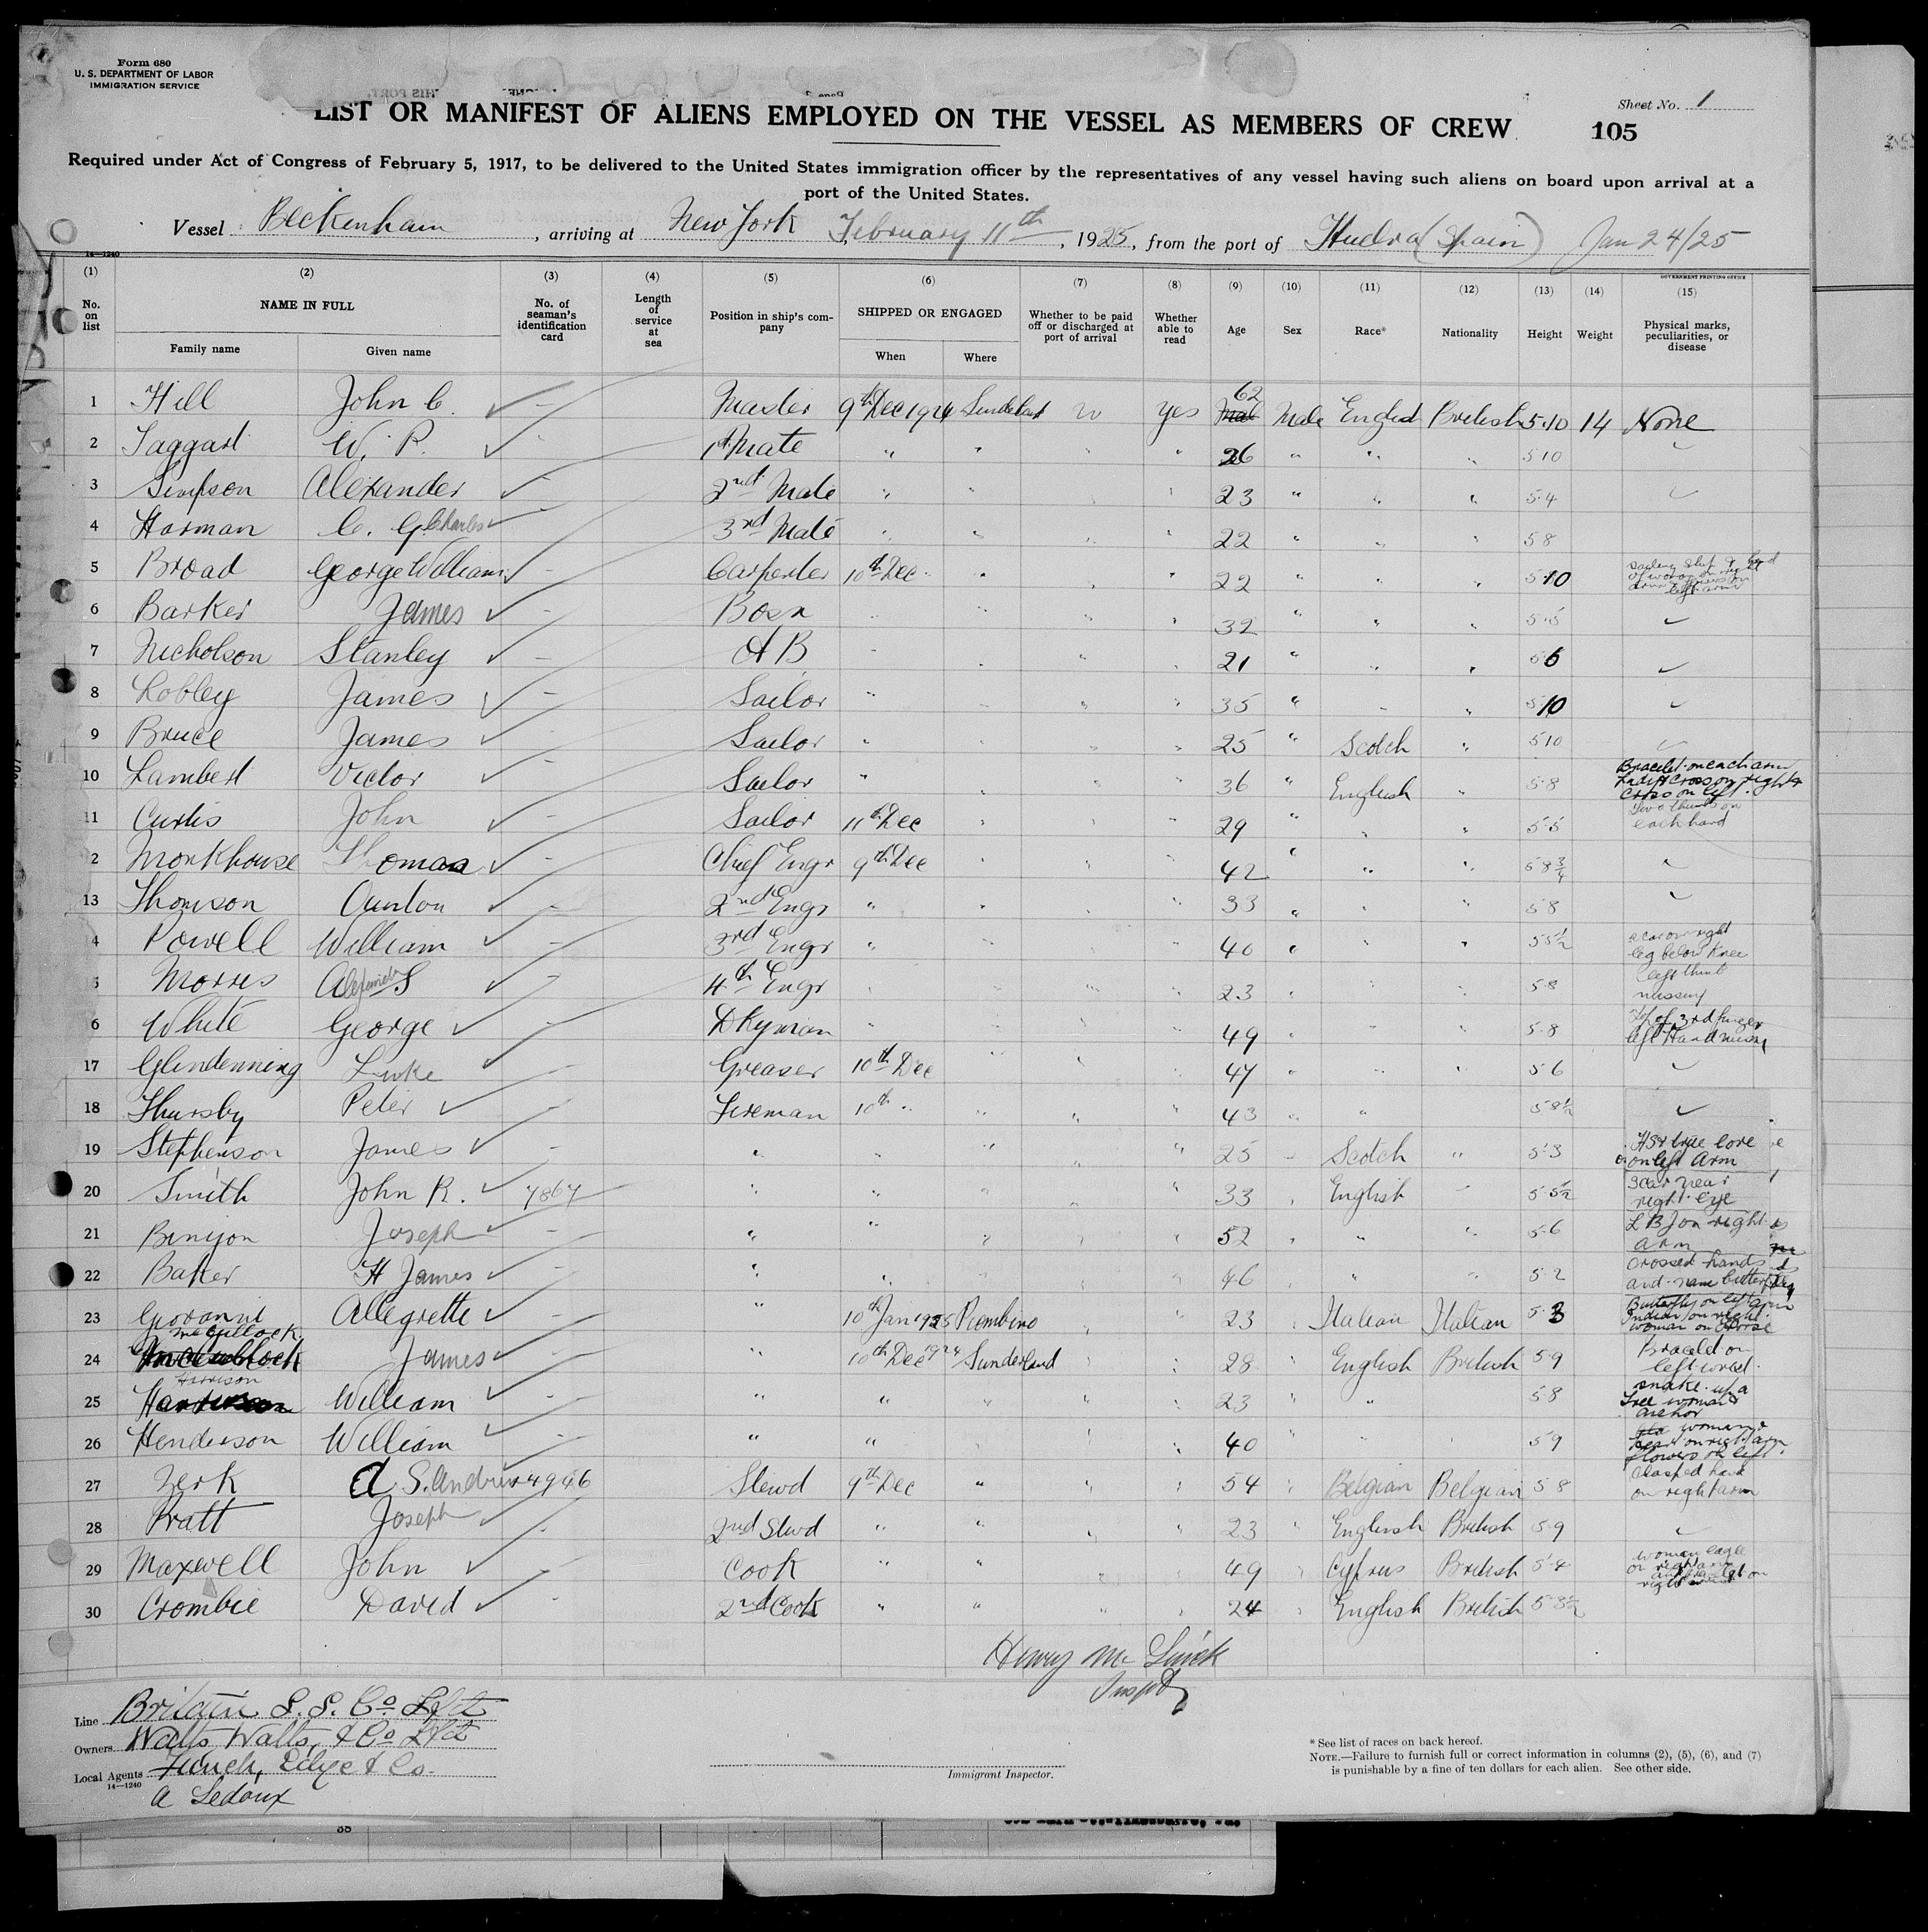 Form 680
U. S. DEPARTMENT OF LABOR
IMMIGRATION SERVICE
Sheet No. 1
LIST OR MANIFEST OF ALIENS EMPLOYED ON THE VESSEL AS MEMBERS OF CREW
105
Required under Act of Congress of February 5, 1917, to be delivered to the United States immigration officer by the representatives of any vessel having such aliens on board upon arrival at a
port of the United States.
Vessel Beckenham, arriving at New York February 11th, 1925, from the port of Huelva (Spain) Jan 24/25
14—1240 GOVERNMENT PRINTING OFFICE
(1) (2) (3) (4) (5) (6) (7) (8) (9) (10) (11) (12) (13) (14) (15)
No. on list NAME IN FULL Family name Given name No. of seaman's identification card Length of service at sea Position in ship's company SHIPPED OR ENGAGED When Where Whether to be paid off or discharged at port of arrival Whether able to read Age Sex Race* Nationality Height Weight Physical marks, peculiarities, or disease
1 Hill John C. ✓ - Master 9th Dec 1924 Sunderland no yes 62 Male English British 5.10 14 None
2 Taggart W. P. ✓ - 1st Mate " " " " 26 " " " 5 10 ✓
3 Simpson Alexander ✓ - 2nd Mate " " " " 23 " " " 5.4 ✓
4 Harman C. G. Charles ✓ - 3rd Mate " " " " 22 " " " 5 8
5 Broad George William ✓ - Carpenter 10th Dec " " " 22 " " " 5 10
6 Barker James ✓ - Bosn " " " " 32 " " " 5.5 ✓
7 Nicholson Stanley ✓ - A B " " " " 21 " " " 5 6 ✓
8 Lobley James ✓ - Sailor " " " " 35 " " " 5 10 ✓
9 Bruce James ✓ - Sailor " " " " 25 " Scotch " 5 10 ✓
10 Lambert Victor ✓ - Sailor " " " " 36 " English " 5.8 Bracelet on each arm Lady & Cross on right & Cross on left.
11 Curtis John ✓ - Sailor 11th Dec " " " 29 " " " 5.5 Two thumbs on each hand
2 Monkhouse Thomas ✓ - Chief Engr 9th Dec " " " 42 " " " 5 8 3/4 ✓
13 Thomson ✓ - 2nd Engr " " " " 33 " " " 5 8 ✓
4 Powell William ✓ - 3rd Engr " " " " 40 " " " 5 5 1/2 scar on right leg below knee
5 Morris S ✓ - 4th Engr " " " " 23 " " " 5.8 left thumb missing
6 White George ✓ - Dkyman " " " " 49 " " " 5.8 Top of 3rd finger left Hand missing
17 Glendenning Luke ✓ Greaser 10th Dec " " " 47 " " " 5 6 ✓
18 Thursby Peter ✓ - Fireman 10th " " " " 43 " " 5 8 1/2 ✓
19 Stephenson James ✓ - " " " " " 25 " Scotch " 5.3 true love on left Arm
20 Smith John R. ✓ 7867 " " " " " 33 " English " 5 5 1/2 Scar near right eye
21 Binyon Joseph ✓ - " " " " " 52 " " " 5.6 L B J on right arm
22 Baker H James ✓ - " " " " " 46 " " " 5.2 crossed hands and name
23 Giovanni Allegrette ✓ - " 10th Jan 1925 Piombino " " 23 " Italian Italian 5.3 Butterfly on left arm Indian on right. woman on
24 McCullock James ✓ - " 10th Dec 1924 Sunderland " " 28 " English British 5.9 Bracelet on left wrist.
25 Harrison William ✓ - " " " " " 23 " " 5 8 snake up a Tree woman & anchor
26 Henderson William ✓ - " " " " " 40 " " " 5.9 woman's head on right arm flowers on left.
27 Zerk A S. Andrew 4946 Stewd 9th Dec " " " 54 " Belgian Belgian 5 8 Clasped hand on right arm
28 Pratt Joseph ✓ - 2nd Stwd " " " " 23 " English British 5.9 ✓
29 Maxwell John ✓ - Cook " " " " 49 " Cyprus British 5'4 woman eagle on right arm
30 Crombie David ✓ - 2nd Cook " " " " 24 " English British 5.3 1/2
Henry
Inspctr
Line Britain S. S. Co. Ltd
Owners Watts Watts, & Co Ltd
Local Agents Funch, Edye & Co.
14—1240
A Ledoux
Immigrant Inspector.
* See list of races on back hereof.
NOTE.—Failure to furnish full or correct information in columns (2), (5), (6), and (7)
is punishable by a fine of ten dollars for each alien. See other side.